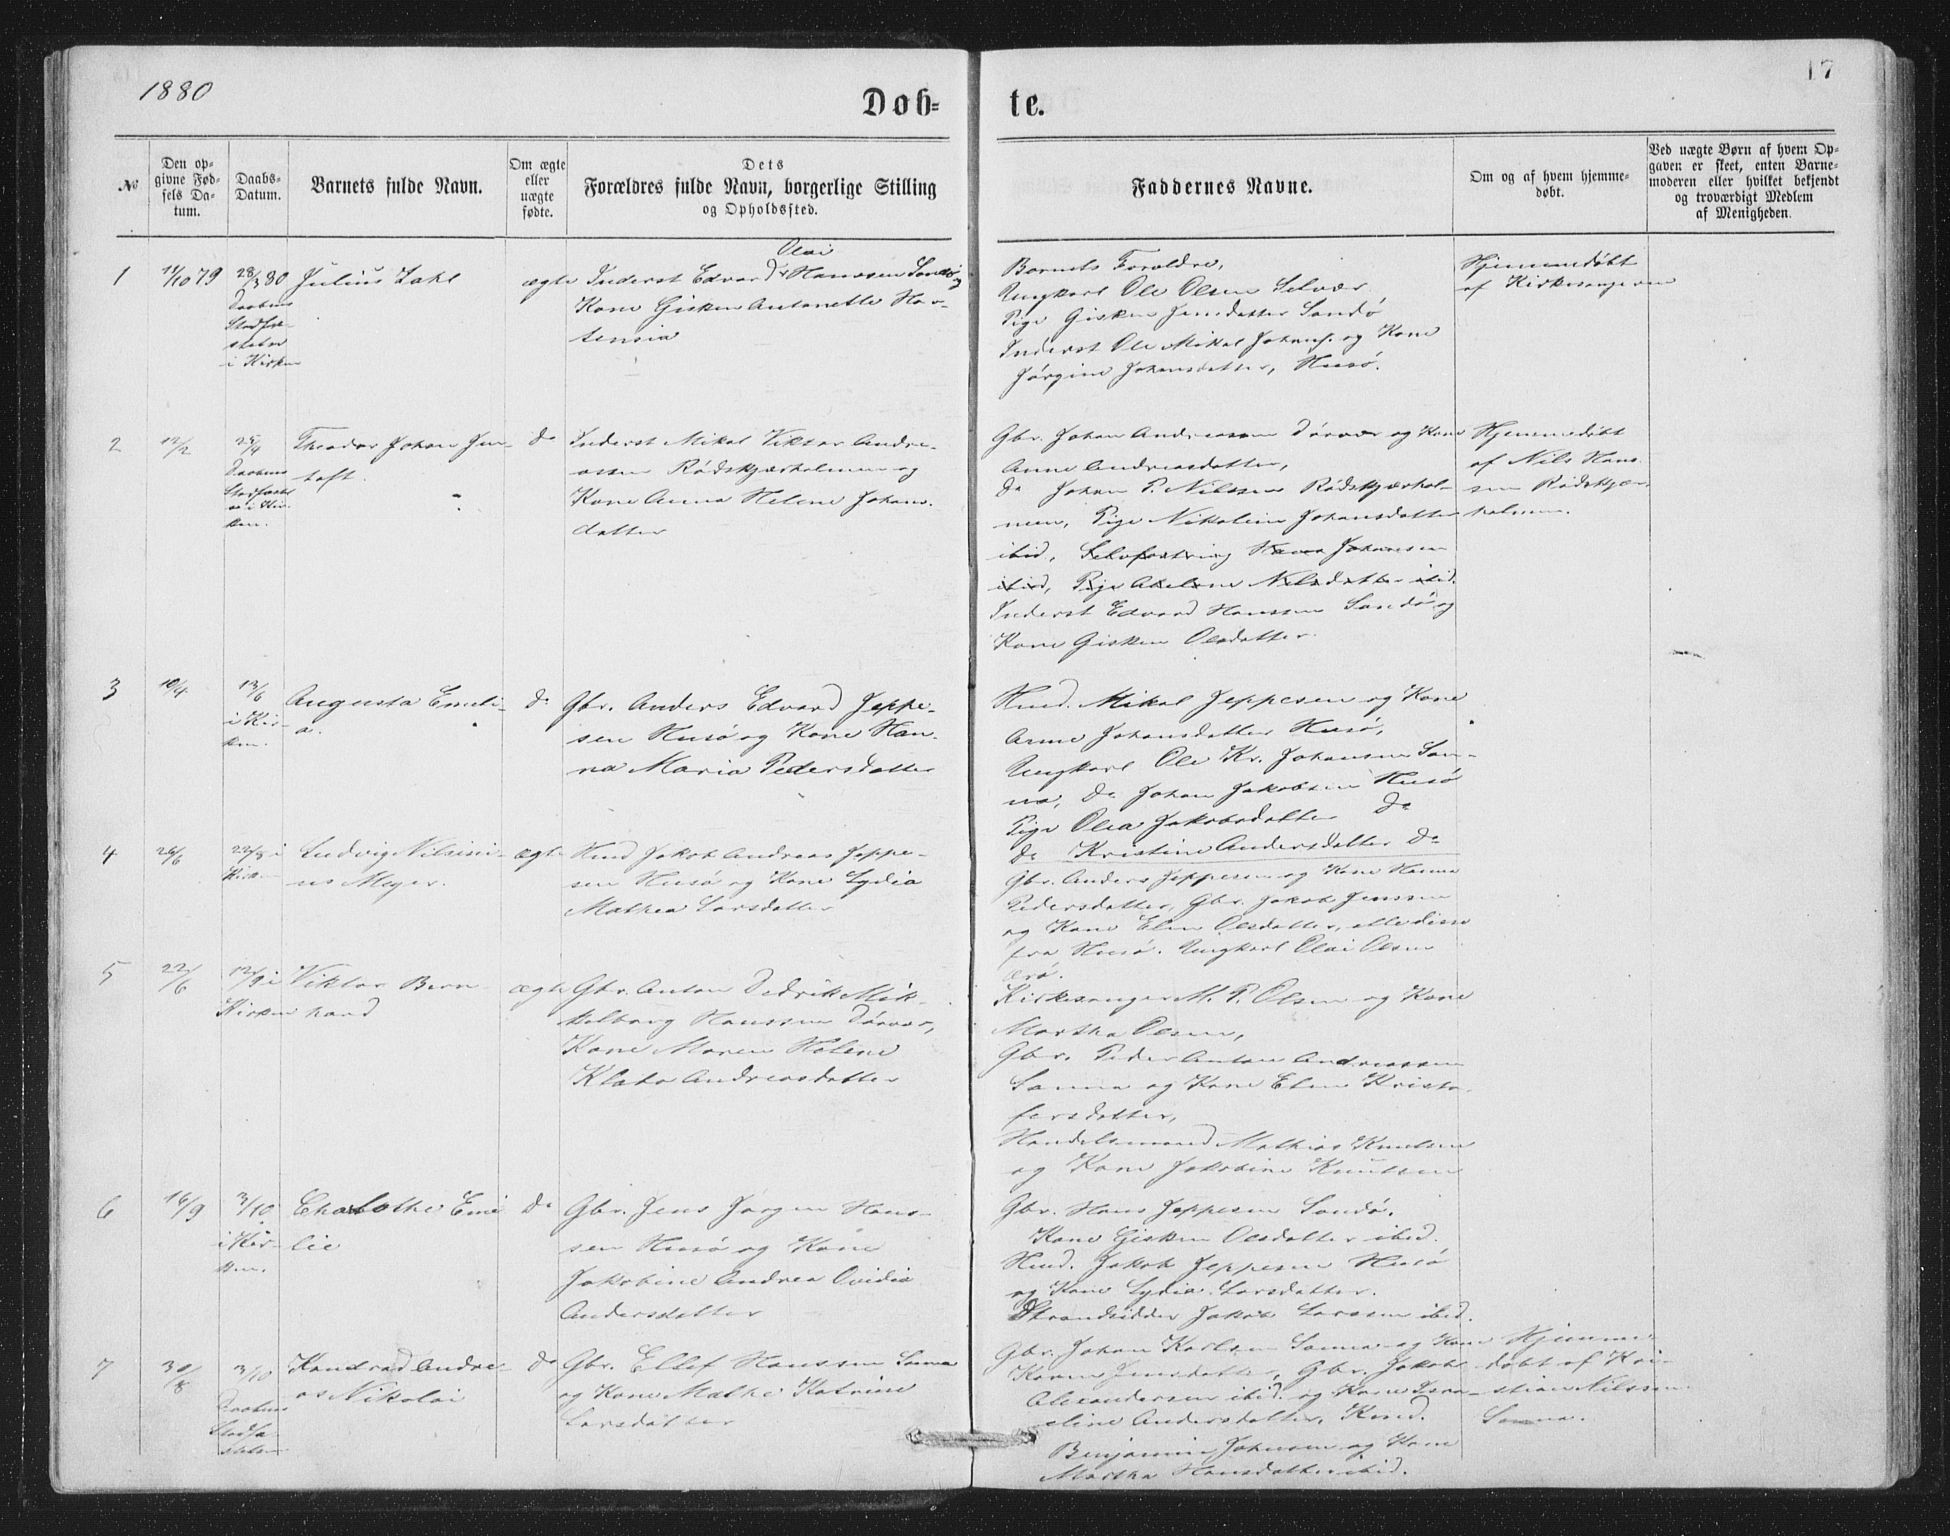 1880
17
Døb-
te.
No
Den op-
givne Fød-
sels Da-
tum.
Daabs-
Datum.
Barnets fulde Navn.
Om ægte
eller
uægte
fødte.
Dets
Forældres fulde Navn, borgerlige Stilling
og Opholdssted.
Faddernes Navne.
Om og af hvem hjemme-
døbt.
Ved uægte Børn af hvem Op-
gaven er skeet, enten Barne-
moderen eller hvilket bekjendt
og troværdigt Medlem
af Menigheden.
1
11/10 79
28/3 80
Daabens
Stadfæ-
stelse
i Kirken
Julius Zakl
ægte
Olai
Inderst Edvard Hanssen Sandø og
Kone Gisken Antonette Hor-
tensia
Barnets Forældre,
Ungkarl Ole Olsen Selvær
Pige Gisken Jensdatter Sandø
Inderst Ole Mikal Johans. og Kone
Jørgine Johansdatter, Husø.
Hjemmedøbt
af Kirkesangeren
2
12/2
25/4
Daabens
Stadfæstel
se i Kir-
ken.
Theodor Johan Jen-
toft.
do
Inderst Mikal Viktor Andre-
assen Rødskjærholmen og
Kone Anna Helene Johans.
datter
Gbr. Johan Andreassen Dørvær og Kone
Anne Andreasdatter,
do Johan P. Nilssen Rødskjærhol-
men, Pige Nikoline Johansdatter
ibid, Selvfostring Hans Johansen
ibid, Pige Abelone Nilsdatter ibid.
Inderst Edvard Hanssen Sandø og
Kone Gisken Olsdatter.
Hjemmedøbt
af Nils Hans
sen Rødskjær-
holmen.
3
10/4
13/6
i Kir-
ken.
Augusta Emeli-
a.
do
Gbr. Anders Edvard Jeppe-
sen Husø og Kone Han-
na Maria Pedersdatter
Hmd. Mikal Jeppesen og Kone
Anne Johansdatter Husø,
Ungkarl Ole Kr. Johansen San-
na, do Johan Jakobsen Husø
Pige Olea Jakobsdatter do
do Kristine Andersdatter do
4
26/6
22/8 i
Kirk.
Ludvig Nilsini-
us Meyer.
ægte
Hmd Jakob Andreas Jeppe-
sen Husø og Kone Lydia
Mathea Larsdatter
Gbr. Anders Jeppesen og Kone Hanna
Pedersdatter, Gbr. Jakob Jenssen
og Kone Elen Olsdatter, alle disse
fra Husø. Ungkarl Olai Olsen
5
22/6
12/9 i
Kirken
Viktor Bern
hard
ægte
Gbr. Anton Dedrik Mik-
kelborg Hanssen Dørvær,
Kone Maren Helene
Klara Andreasdatter
Kirkesanger M. P. Olsen og Kone
Martha Olsen,
Gbr. Peder Anton Andreassen
Sanna og Kone Elen Kristo-
fersdatter,
Handelsmand Mathias Knutsen
og Kone Jakobine Knutsen
6
16/9
3/10
i Kir-
ken.
Charlothe Emi
lie
do
Gbr. Jens Jørgen Hans-
sen Husø og Kone
Jakobine Andrea Ovidia
Andersdatter
Gbr. Hans Jeppesen Sandø.
Kone Gisken Olsdatter ibid.
Hmd. Jakob Jeppesen Husø
og Kone Lydia Larsdatter.
Strandsidder Jakob Larssen ibid.
7
30/8
3/10
Daabens
Stadfæ-
stelse
Kondrad Andre-
as Nikolai
do
Gbr. Ellef Hanssen Sanna
og Kone Mathe Katrine
Larsdatter
Gbr. Johan Karlsen Sanna og Kone
Karen Jensdatter, Gbr. Jakob
Alexandersen ibid. og Kone Isra-
eline Andersdatter, Hmd.
Benjamin Johnsen og Kone
Martha Hansdatter ibid.
Hjemme-
døbt af Kri-
stian Nilssen
Sanna.